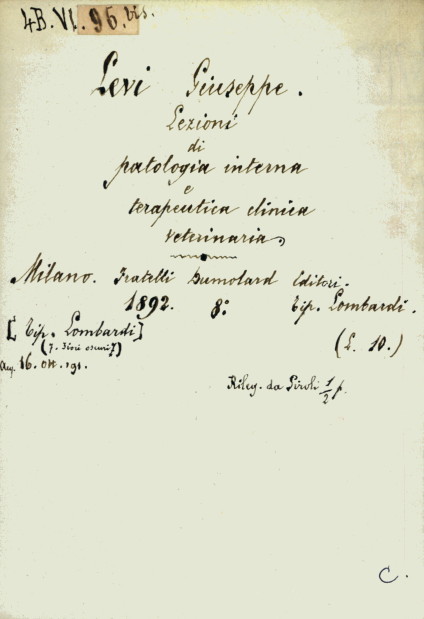 4B.VI.96.bis.
Levi Giuseppe.
Lezioni
di
patologia interna
e
terapeutica clinica
veterinaria
Milano. Fratelli Dumolard Editori.
1892. 8º Tip. Lombardi.
[Tip. Lombardi]
(7. Fiori oscuri 7) (L. 10.)
16. ott.
Rileg. da Piroli 1/2 p.
C.